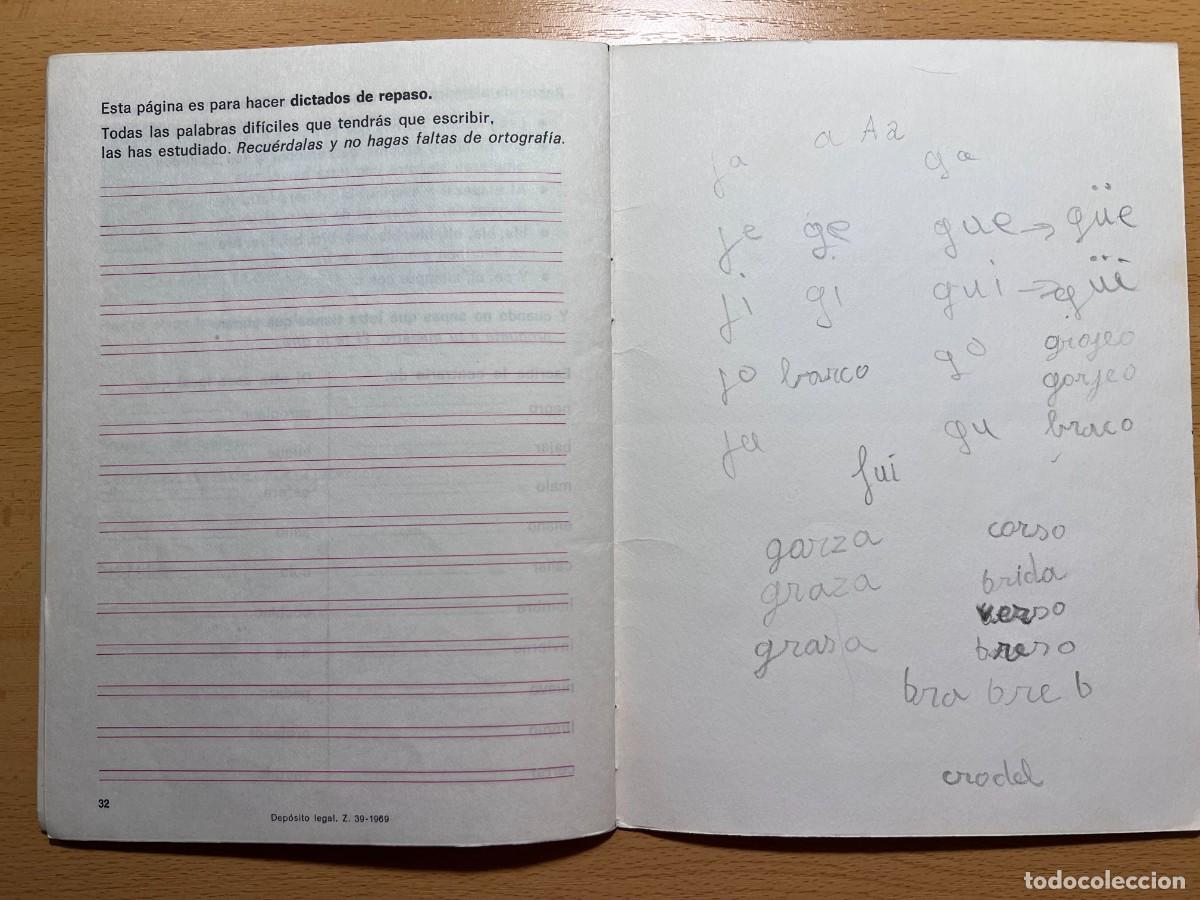 Esta página es para hacer dictados de repaso.
Todas las palabras difíciles que tendrás que escribir,
las has estudiado. Recuérdalas y no hagas faltas de ortografía.
32
Depósito legal. Z. 39-1969
a A a
ja ga
je ge gue → güe
ji gi gui → güi
grojeo
jo barco go gorjeo
ju gu braco
fui
garza corso
graza brida
verso
grasa breso
bra bre b
crodel
todocoleccion